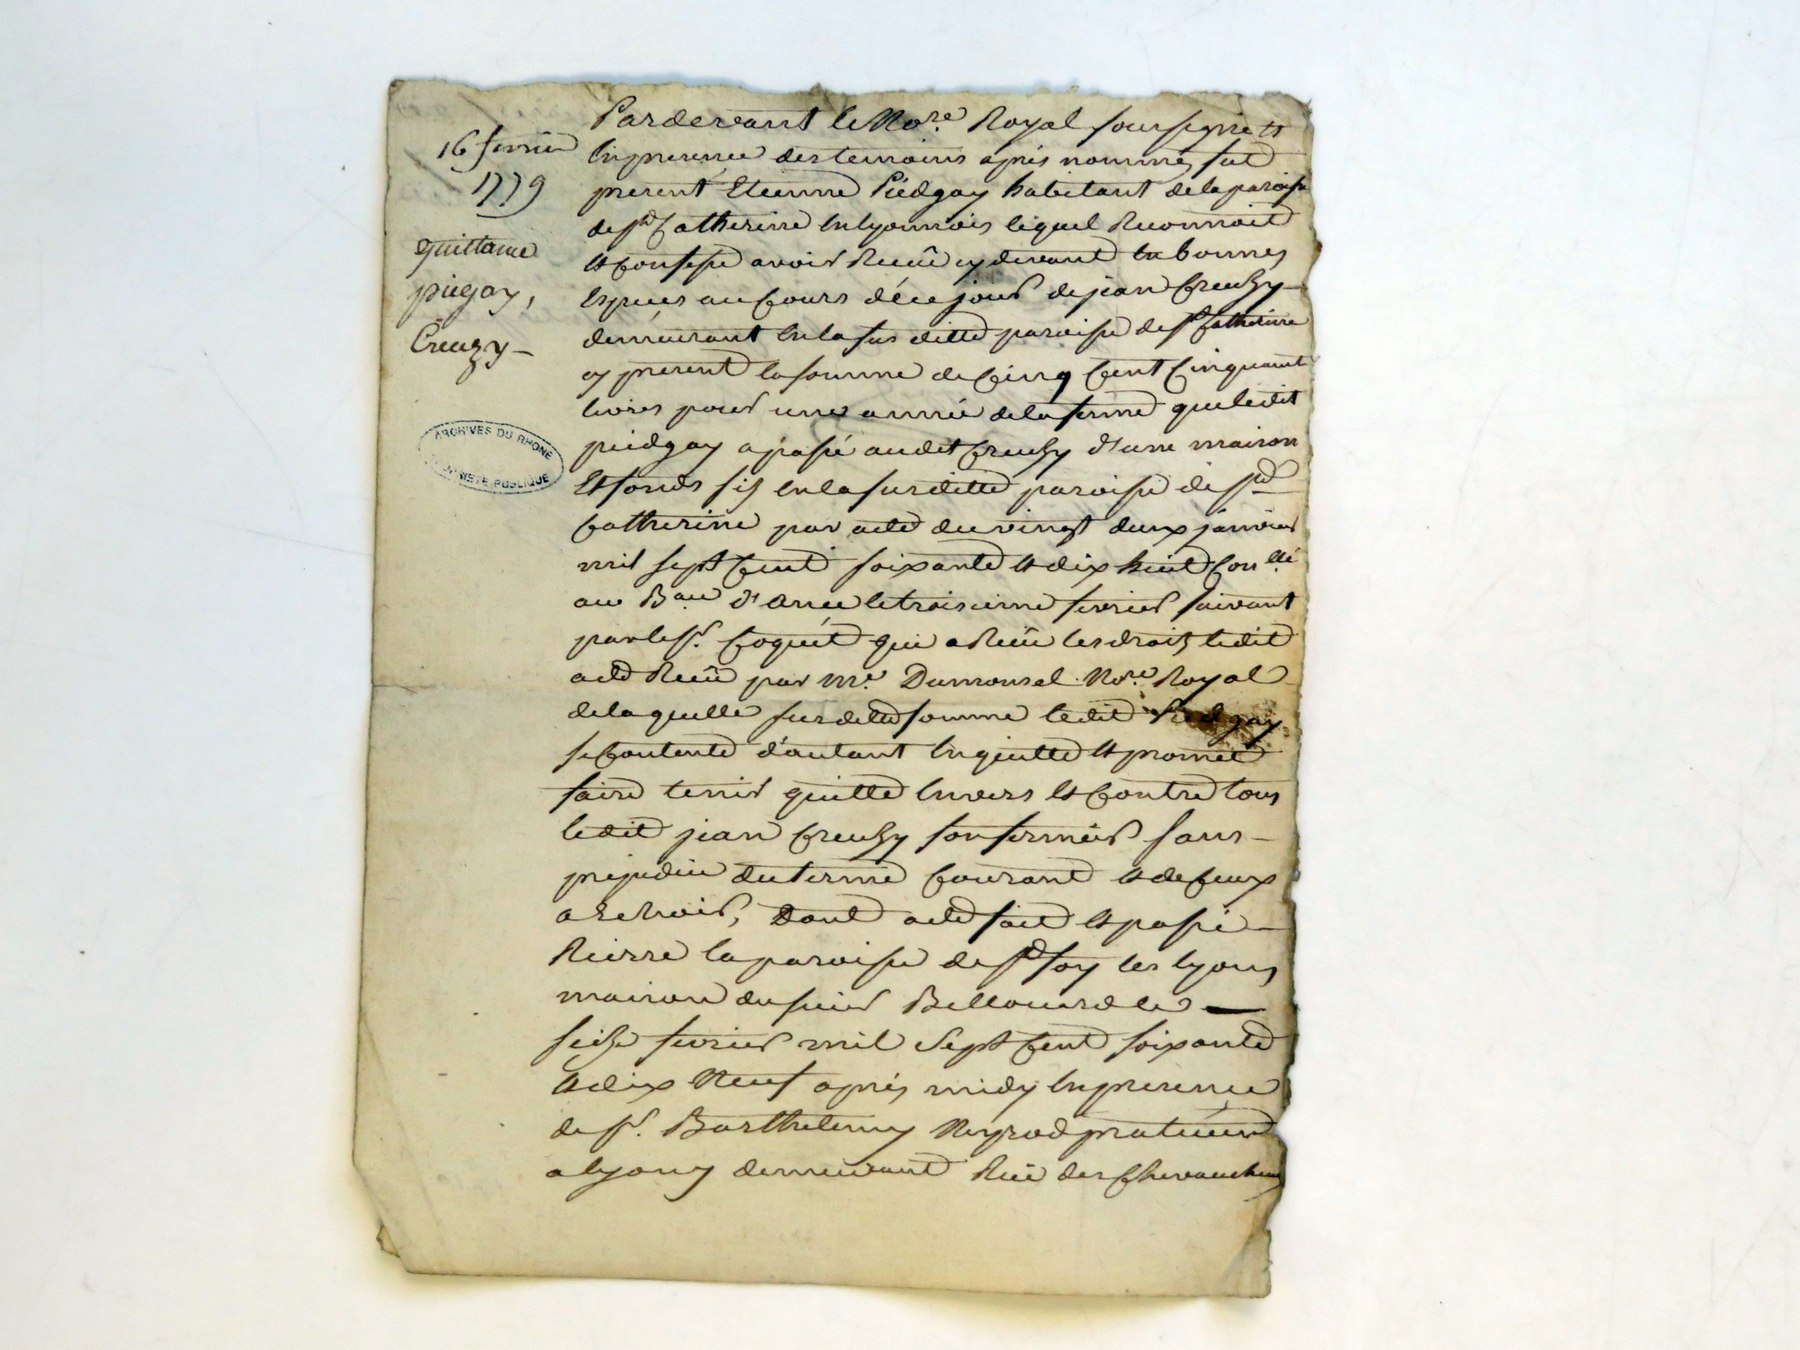 16 fevrier
1779
quittance
piegay,
Creuzy
ARCHIVES DU RHONE
PUBLIQUE
Pardevant le No.re Royal soussigné et
En presence des temoins aprés nommés fut
present Etienne Piédgay habitant de la paroisse
de Ste Catherine en lyonnois lequel Reconnoit
et Confesse avoir Recüe cy devant en bonnes
Especes au Cours dece jour de jean Creuzy
demeurant En la sus ditte paroisse de Ste Catherine
cy present la somme de Cinq Cent Cinquante
livres pour une année de la ferme que ledit
piedgay a passé audit Creuzy d'une maison
Et fonds sis En la susditte paroisse de Ste
Catherine par acte du vingt deux janvier
mil sept Cent soixante et dix huit Con.llé
au B.au d'
le troisieme fevrier suivant
par le Sr. Coquet qui a Recüe les droits ledit
acte Recüe par Me. Dumonsel No.re Royal
de laquelle susdite somme ledit Piedgay
se Contente d'autant En quitte et promet
faire tenir quitte Envers et Contre tous
ledit jean Creuzy son fermier sans
prejudice du terme Courant et de Ceux
a Echoir, Dont acte fait et passé
Riere la paroisse de Ste foy les lyons
maison du sieur Bellouard le
seize fevrier mil Sept Cent soixante
et dix Neuf aprés midy En presence
de Sr. Barthelemy praticien
a lyon y demeurant Rüe des Chevaucheurs